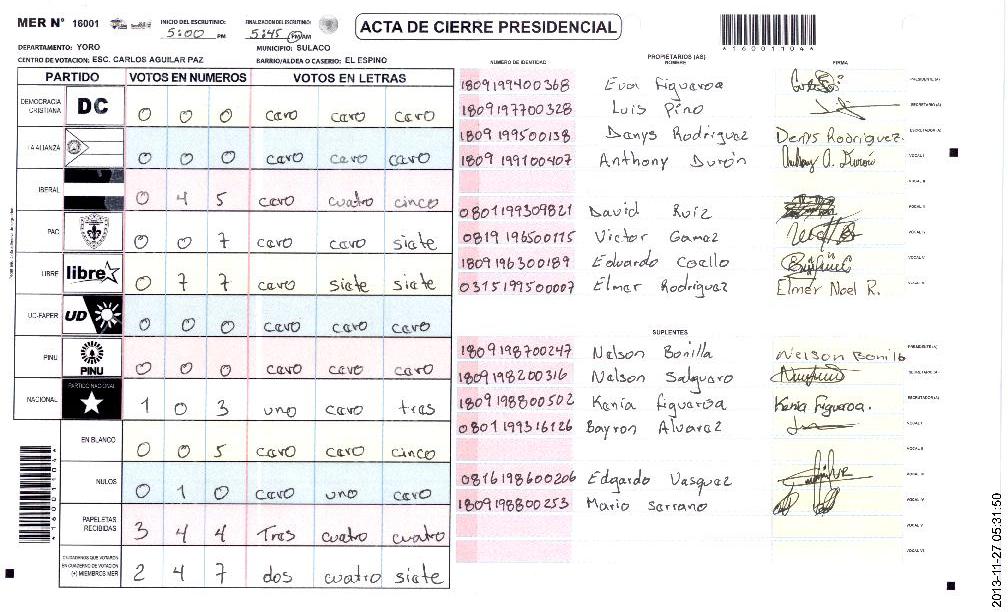 MER N° 16001
INICIO DEL ESCRUTINIO: 5:00 PM
FINALIZACION DEL ESCRUTINIO: 5:45 PM/AM
ACTA DE CIERRE PRESIDENCIAL
*16001104*
DEPARTAMENTO: YORO
MUNICIPIO: SULACO
CENTRO DE VOTACION: ESC. CARLOS AGUILAR PAZ
BARRIO/ALDEA O CASERIO: EL ESPINO
PARTIDO VOTOS EN NUMEROS VOTOS EN LETRAS
DEMOCRACIA CRISTIANA DC 0 0 0 cero cero cero
LA ALIANZA 0 0 0 cero cero cero
IBERAL 0 4 5 cero cuatro cinco
PAC 0 0 7 cero cero siete
LIBRE libre 0 7 7 cero siete siete
UD-FAPER UD 0 0 0 cero cero cero
PINU PINU 0 0 0 cero cero cero
NACIONAL PARTIDO NACIONAL 1 0 3 uno cero tres
EN BLANCO 0 0 5 cero cero cinco
NULOS 0 1 0 cero uno cero
PAPELETAS RECIBIDAS 3 4 4 Tres cuatro cuatro
CIUDADANOS QUE VOTARON EN CUADERNO DE VOTACION (+) MIEMBROS MER 2 4 7 dos cuatro siete
PROPIETARIOS (AS)
NUMERO DE IDENTIDAD NOMBRE FIRMA
1809199400368 Eva Figueroa PRESIDENTE (A)
1809197700328 Luis Pino SECRETARIO (A)
1809199500138 Danys Rodriguez Denys Rodriguez. ESCRUTADOR (A)
1809199100407 Anthony Durón Anthony A. Durón VOCAL I
VOCAL II
0801199309821 David Ruiz VOCAL III
0819196500115 Victor Gamez VOCAL IV
1809196300189 Eduardo Coello VOCAL V
0315199500007 Elmer Rodriguez Elmer Noel R.
SUPLENTES
1809198700247 Nelson Bonilla Nelson Bonilla PRESIDENTE (A)
1809198200316 Nelson Salguero SECRETARIO (A)
1809198800502 Kenia figueroa Kenia Figueroa. ESCRUTADOR (A)
0801199316126 Bayron Alvarez VOCAL I
VOCAL II
0816198600206 Edgardo Vasquez VOCAL III
1809198800253 Mario Serrano VOCAL IV
VOCAL V
VOCAL VI
*16001104*
2013-11-27 05:31:50